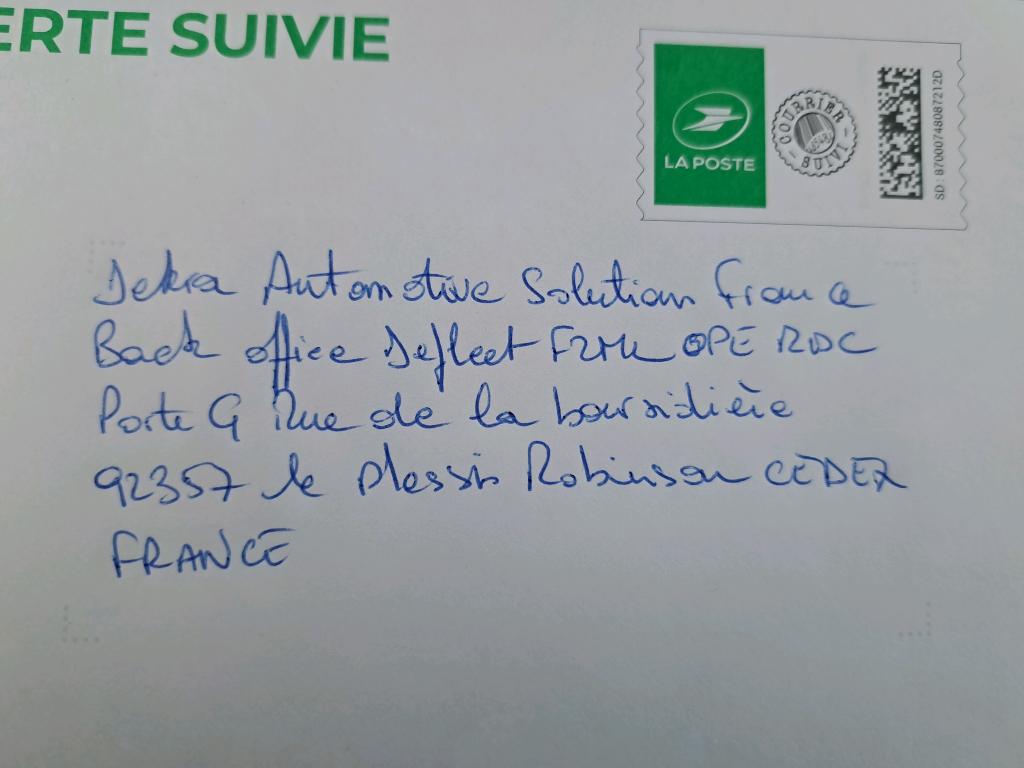 ERTE SUIVIE
LA POSTE
COURRIER SUIVI
SD : 87000748087212D
Dekra Automotive Solution France
Back office Deflect OPE RDC
Porte G Rue de la boursidière
92357 le Plessis Robinson CEDEX
FRANCE